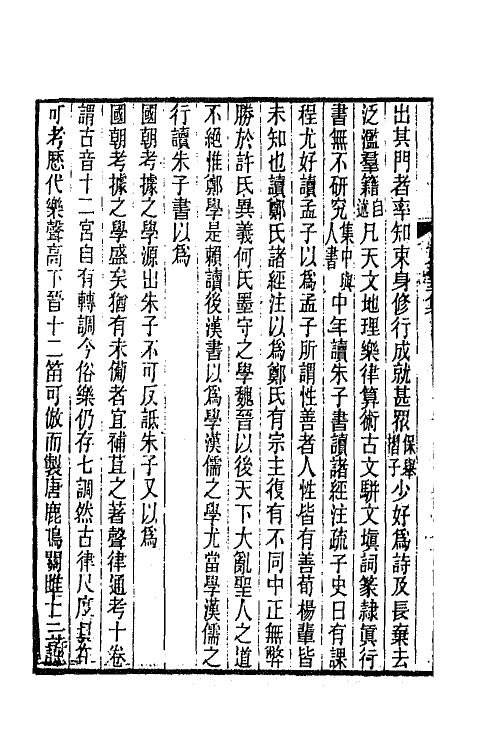 出其門者率知束身修行成就甚眾保舉摺子少好爲詩及長棄去
泛濫羣籍自述凡天文地理樂律算術古文駢文塡詞篆隸眞行
書無不研究集中與人書中年讀朱子書讀諸經注疏子史日有課
程尤好讀孟子以爲孟子所謂性善者人性皆有善荀楊輩皆
未知也讀鄭氏諸經注以爲鄭氏有宗主復有不同中正無弊
勝於許氏異義何氏墨守之學魏晉以後天下大亂聖人之道
不絕惟鄭學是賴讀後漢書以爲學漢儒之學尤當學漢儒之
行讀朱子書以爲
國朝考據之學源出朱子不可反詆朱子又以爲
國朝考據之學盛矣猶有未備者宜補苴之著聲律通考十卷
謂古音十二宮自有轉調今俗樂仍存七調然古律尺度具在
可考歷代樂聲高下晉十二笛可倣而製唐鹿鳴關雎十二詩